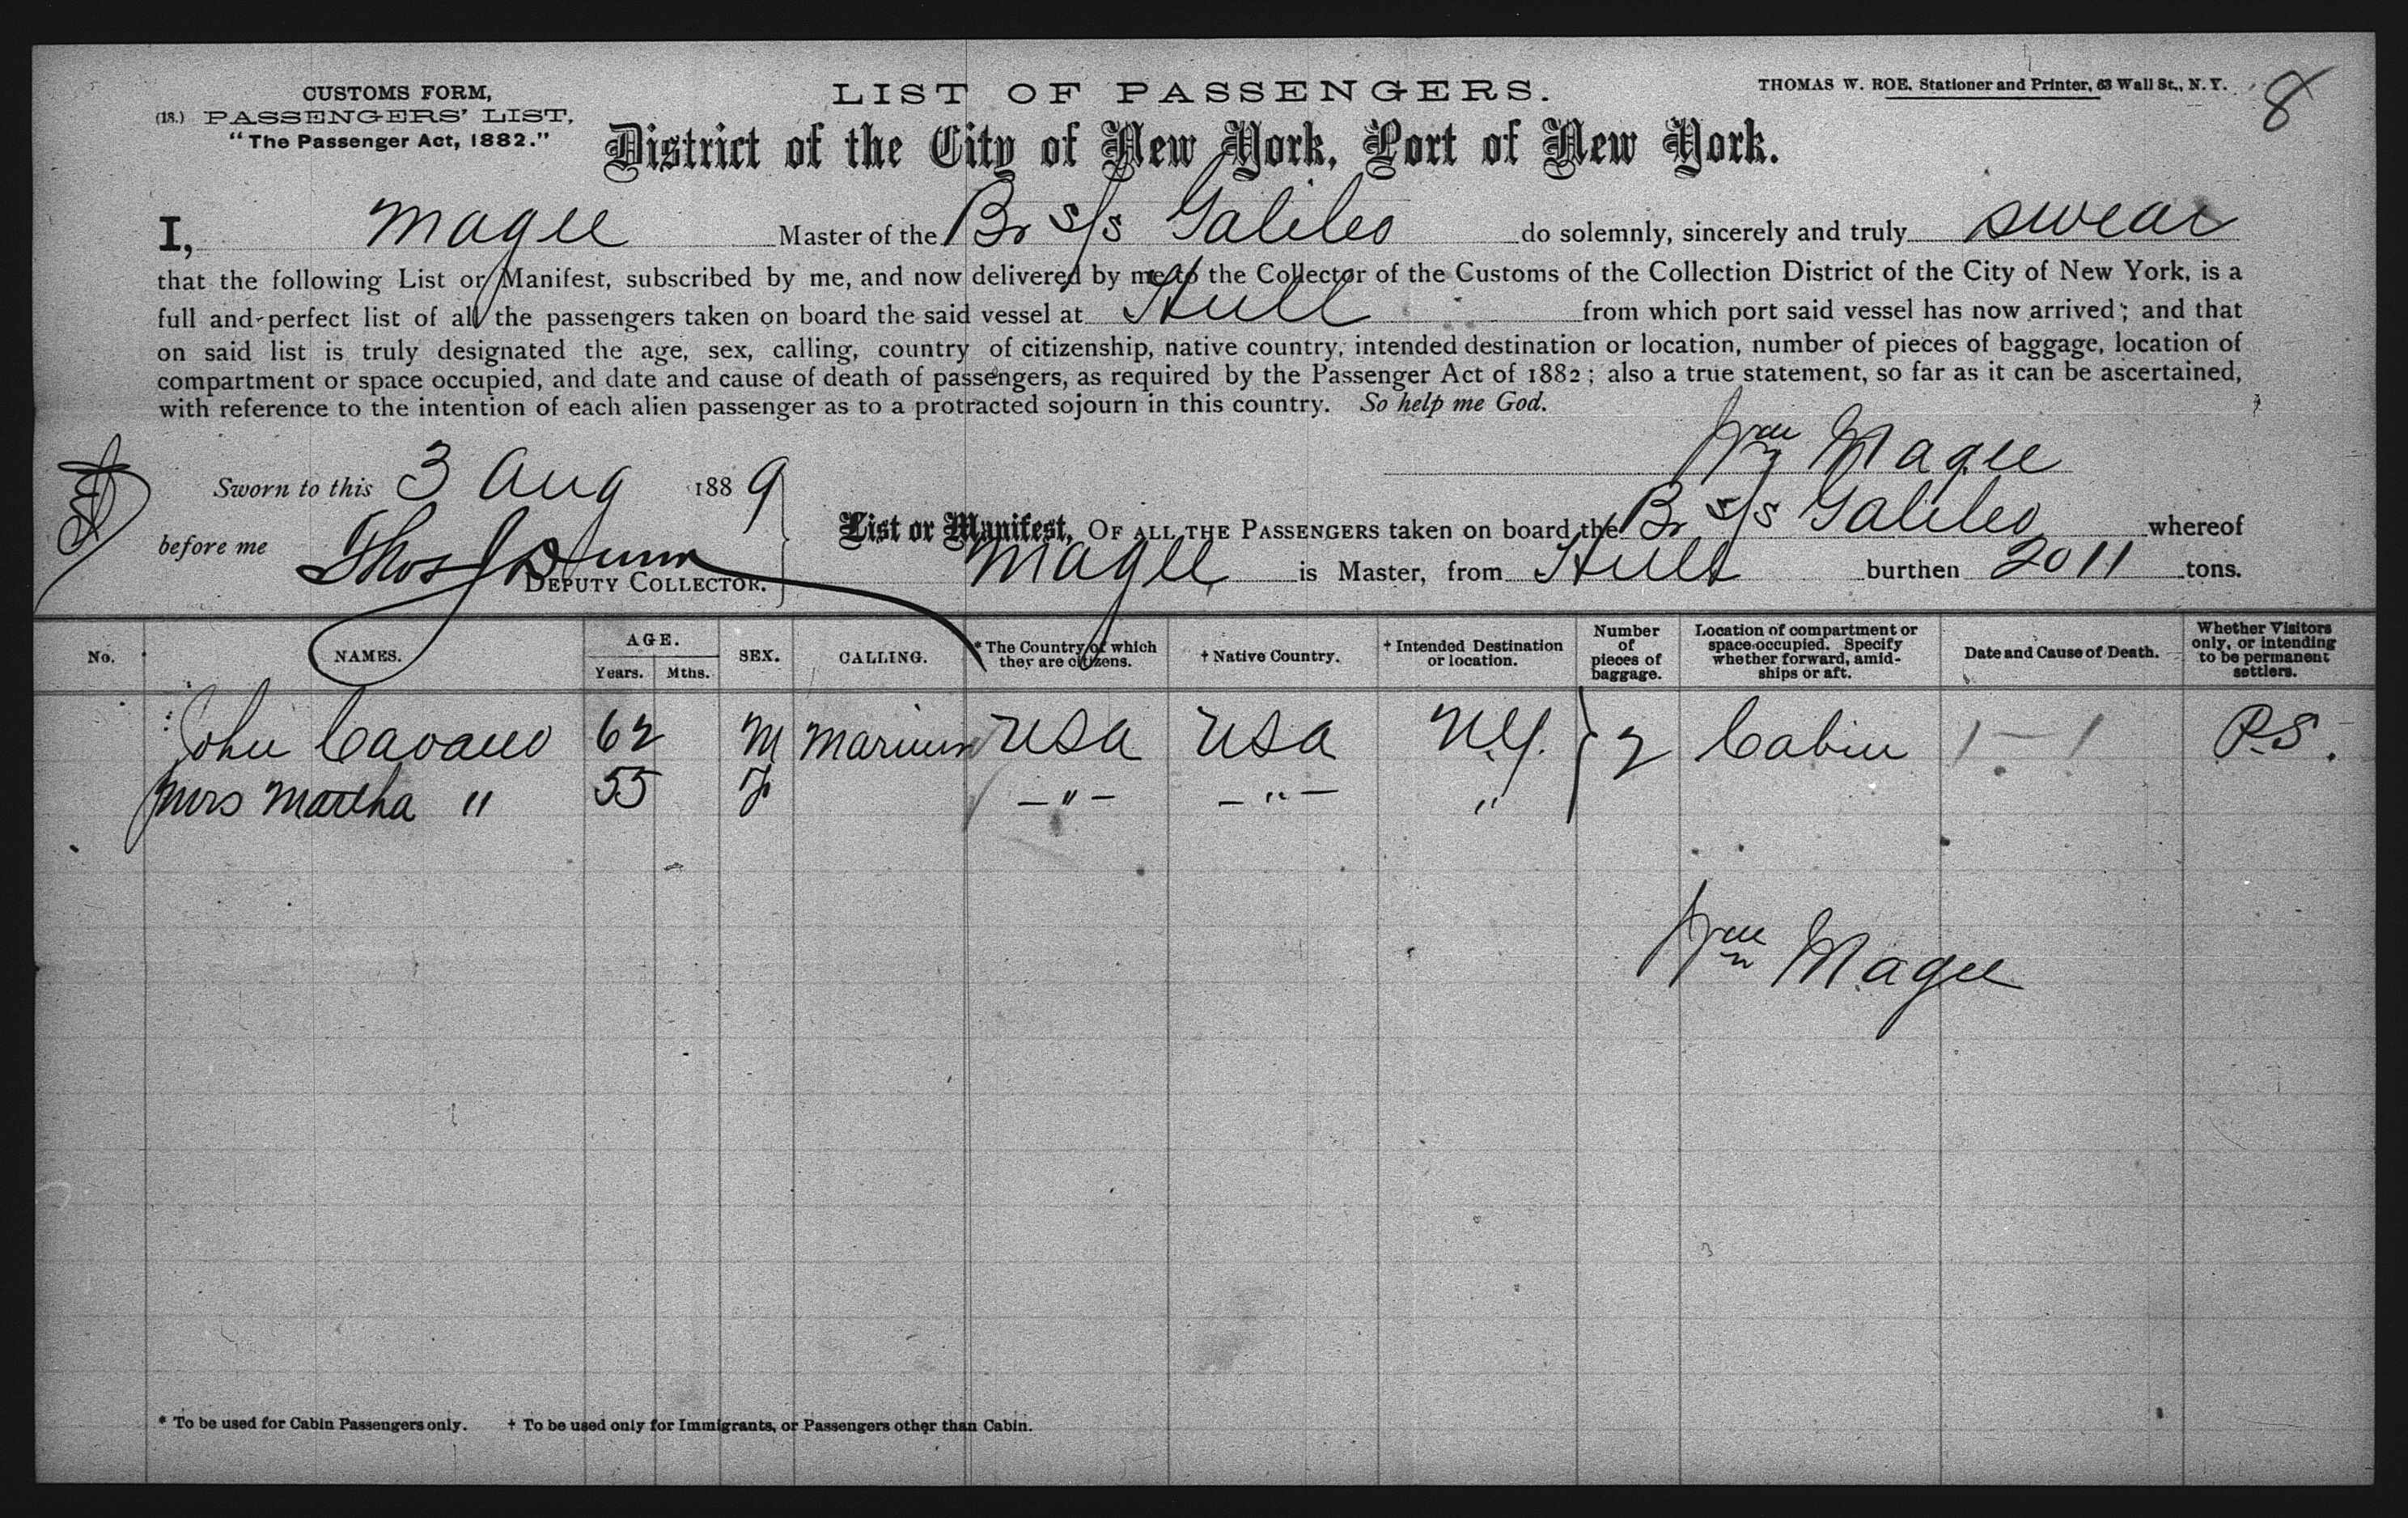 CUSTOMS FORM,
(18.) PASSENGERS' LIST,
"The Passenger Act, 1882."
LIST OF PASSENGERS.
THOMAS W. ROE, Stationer and Printer, 63 Wall St., N. Y.
8
District of the City of New York, Port of New York.
I, Magee Master of the Br S/S Galileo do solemnly, sincerely and truly swear
that the following List or Manifest, subscribed by me, and now delivered by me to the Collector of the Customs of the Collection District of the City of New York, is a
full and perfect list of all the passengers taken on board the said vessel at Hull from which port said vessel has now arrived; and that
on said list is truly designated the age, sex, calling, country of citizenship, native country, intended destination or location, number of pieces of baggage, location of
compartment or space occupied, and date and cause of death of passengers, as required by the Passenger Act of 1882; also a true statement, so far as it can be ascertained,
with reference to the intention of each alien passenger as to a protracted sojourn in this country. So help me God.
Wm Magee
Sworn to this 3 Aug 1889
before me Thos J Dunn
DEPUTY COLLECTOR.
List or Manifest, OF ALL THE PASSENGERS taken on board the Br S/S Galileo whereof
Magee is Master, from Hull burthen 2011 tons.
No. NAMES. AGE. Years. Mths. SEX. CALLING. * The Country of which they are citizens. † Native Country. † Intended Destination or location. Number of pieces of baggage. Location of compartment or space occupied. Specify whether forward, amidships or aft. Date and Cause of Death. Whether Visitors only, or intending to be permanent settlers.
John 62 M Mariner USA USA N.Y. 2 Cabin 1 — 1 P.S.
Mrs Martha " 55 F — " — — " — "
Wm Magee
* To be used for Cabin Passengers only. † To be used only for Immigrants, or Passengers other than Cabin.